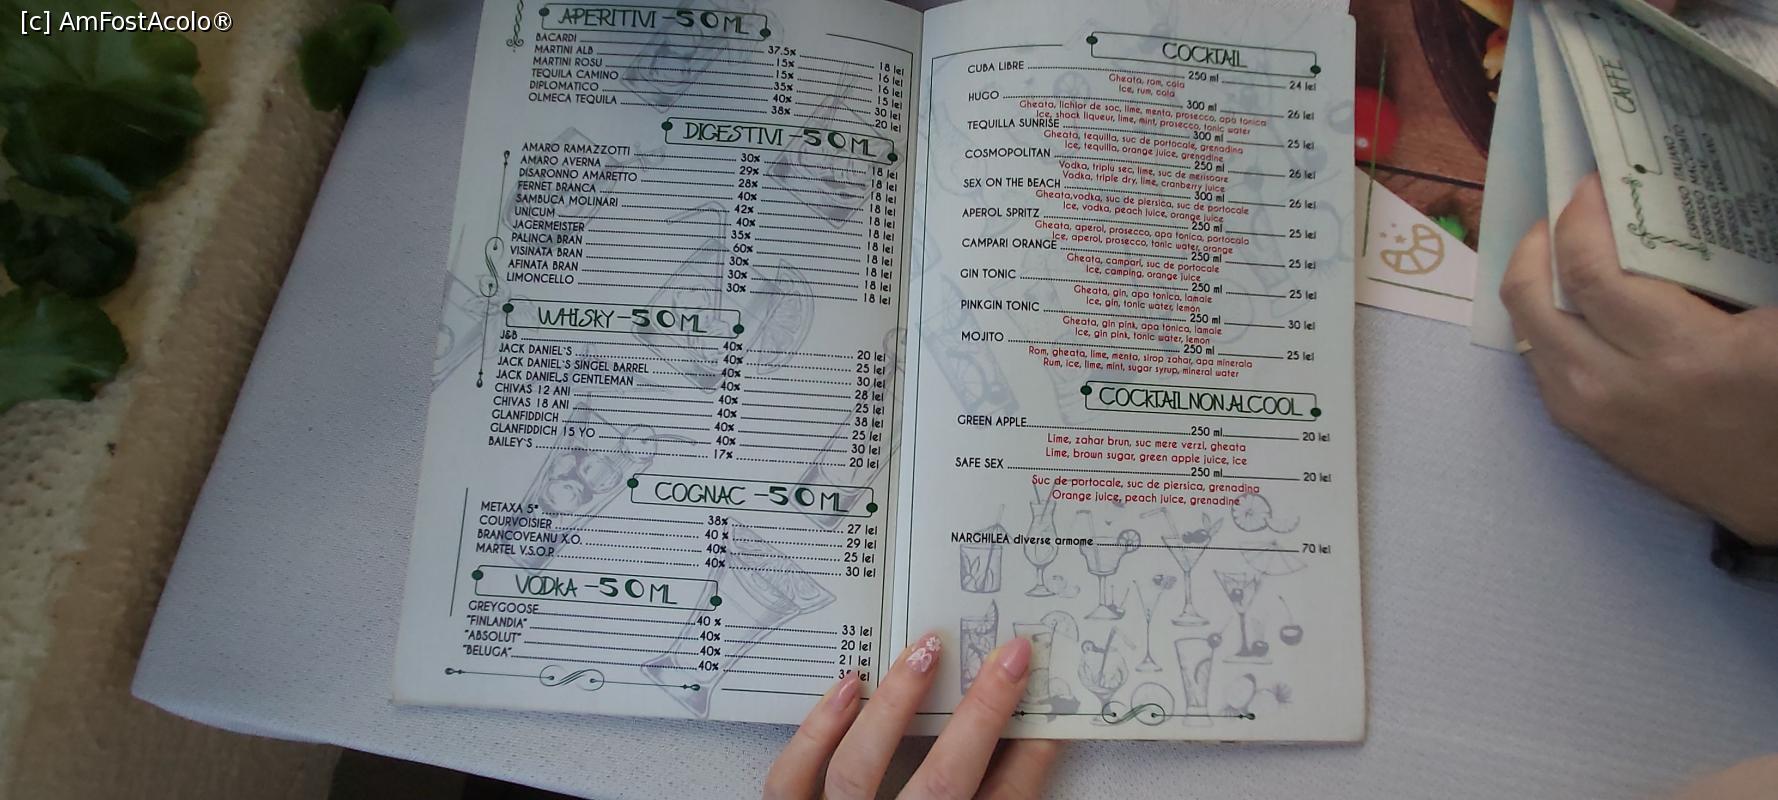 [c] AmFostAcolo®
APERITIVI -50 ML
BACARDI 37.5% 18 lei
MARTINI ALB 15% 16 lei
MARTINI ROSU 15% 16 lei
TEQUILA CAMINO 35% 15 lei
DIPLOMATICO 40% 30 lei
OLMECA TEQUILA 38% 20 lei
DIGESTIVI -50 ML
AMARO RAMAZZOTTI 30% 18 lei
AMARO AVERNA 29% 18 lei
DISARONNO AMARETTO 28% 18 lei
FERNET BRANCA 40% 18 lei
SAMBUCA MOLINARI 42% 18 lei
UNICUM 40% 18 lei
JAGERMEISTER 35% 18 lei
PALINCA BRAN 60% 18 lei
VISINATA BRAN 30% 18 lei
AFINATA BRAN 30% 18 lei
LIMONCELLO 30% 18 lei
WHISKY -50 ML
J&B 40% 20 lei
JACK DANIEL'S 40% 25 lei
JACK DANIEL'S SINGEL BARREL 40% 30 lei
JACK DANIELS GENTLEMAN 40% 28 lei
CHIVAS 12 ANI 40% 25 lei
CHIVAS 18 ANI 40% 38 lei
GLANFIDDICH 40% 25 lei
GLANFIDDICH 15 YO 40% 30 lei
BAILEY'S 17% 20 lei
COGNAC -50 ML
METAXA 5* 38% 27 lei
COURVOISIER 40 % 29 lei
BRANCOVEANU X.O. 40% 25 lei
MARTEL V.S.O.P. 40% 30 lei
VODKA -50 ML
GREYGOOSE 40 % 33 lei
"FINLANDIA" 40% 20 lei
"ABSOLUT" 40% 21 lei
"BELUGA" 40% lei
COCKTAIL
CUBA LIBRE 250 ml 24 lei
Gheata, rom, cola
Ice, rum, cola
HUGO 300 ml 26 lei
Gheata, lichior de soc, lime, menta, prosecco, apa tonica
Ice, shock liqueur, lime, mint, prosecco, tonic water
TEQUILLA SUNRISE 300 ml 25 lei
Gheata, tequilla, suc de portocale, grenadina
Ice, tequilla, orange juice, grenadine
COSMOPOLITAN 250 ml 26 lei
Vodka, triplu sec, lime, suc de merisoare
Vodka, triple dry, lime, cranberry juice
SEX ON THE BEACH 300 ml 26 lei
Gheata,vodka, suc de piersica, suc de portocale
Ice, vodka, peach juice, orange juice
APEROL SPRITZ 250 ml 25 lei
Gheata, aperol, prosecco, apa tonica, portocala
Ice, aperol, prosecco, tonic water, orange
CAMPARI ORANGE 250 ml 25 lei
Gheata, campari, suc de portocale
Ice, camping, orange juice
GIN TONIC 250 ml 25 lei
Gheata, gin, apa tonica, lamaie
Ice, gin, tonic water, lemon
PINKGIN TONIC 250 ml 30 lei
Gheata, gin pink, apa tonica, lamaie
Ice, gin pink, tonic water, lemon
MOJITO 250 ml 25 lei
Rom, gheata, lime, menta, sirop zahar, apa minerala
Rum, ice, lime, mint, sugar syrup, mineral water
COCKTAIL NON ALCOOL
GREEN APPLE 250 ml 20 lei
Lime, zahar brun, suc mere verzi, gheata
Lime, brown sugar, green apple juice, ice
SAFE SEX 250 ml 20 lei
Suc de portocale, suc de piersica, grenadina
Orange juice, peach juice, grenadine
NARGHILEA diverse arome 70 lei
CAFFE
ESPRESSO ITALIANO
ESPRESSO MACCHIATO